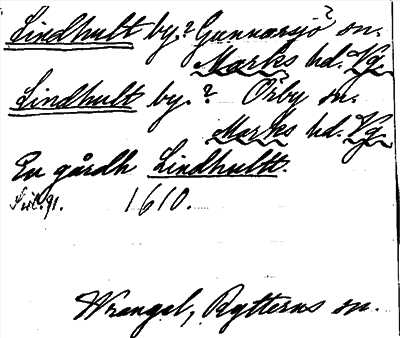 Lindhult by.? Gunnarsjö? sn.
Marks hd. Vg.
Lindhult by.? Örby sn.
Marks hd. Vg.
En gårdh Lindhultt.
1610.
Wrangel, Rytterns sn.